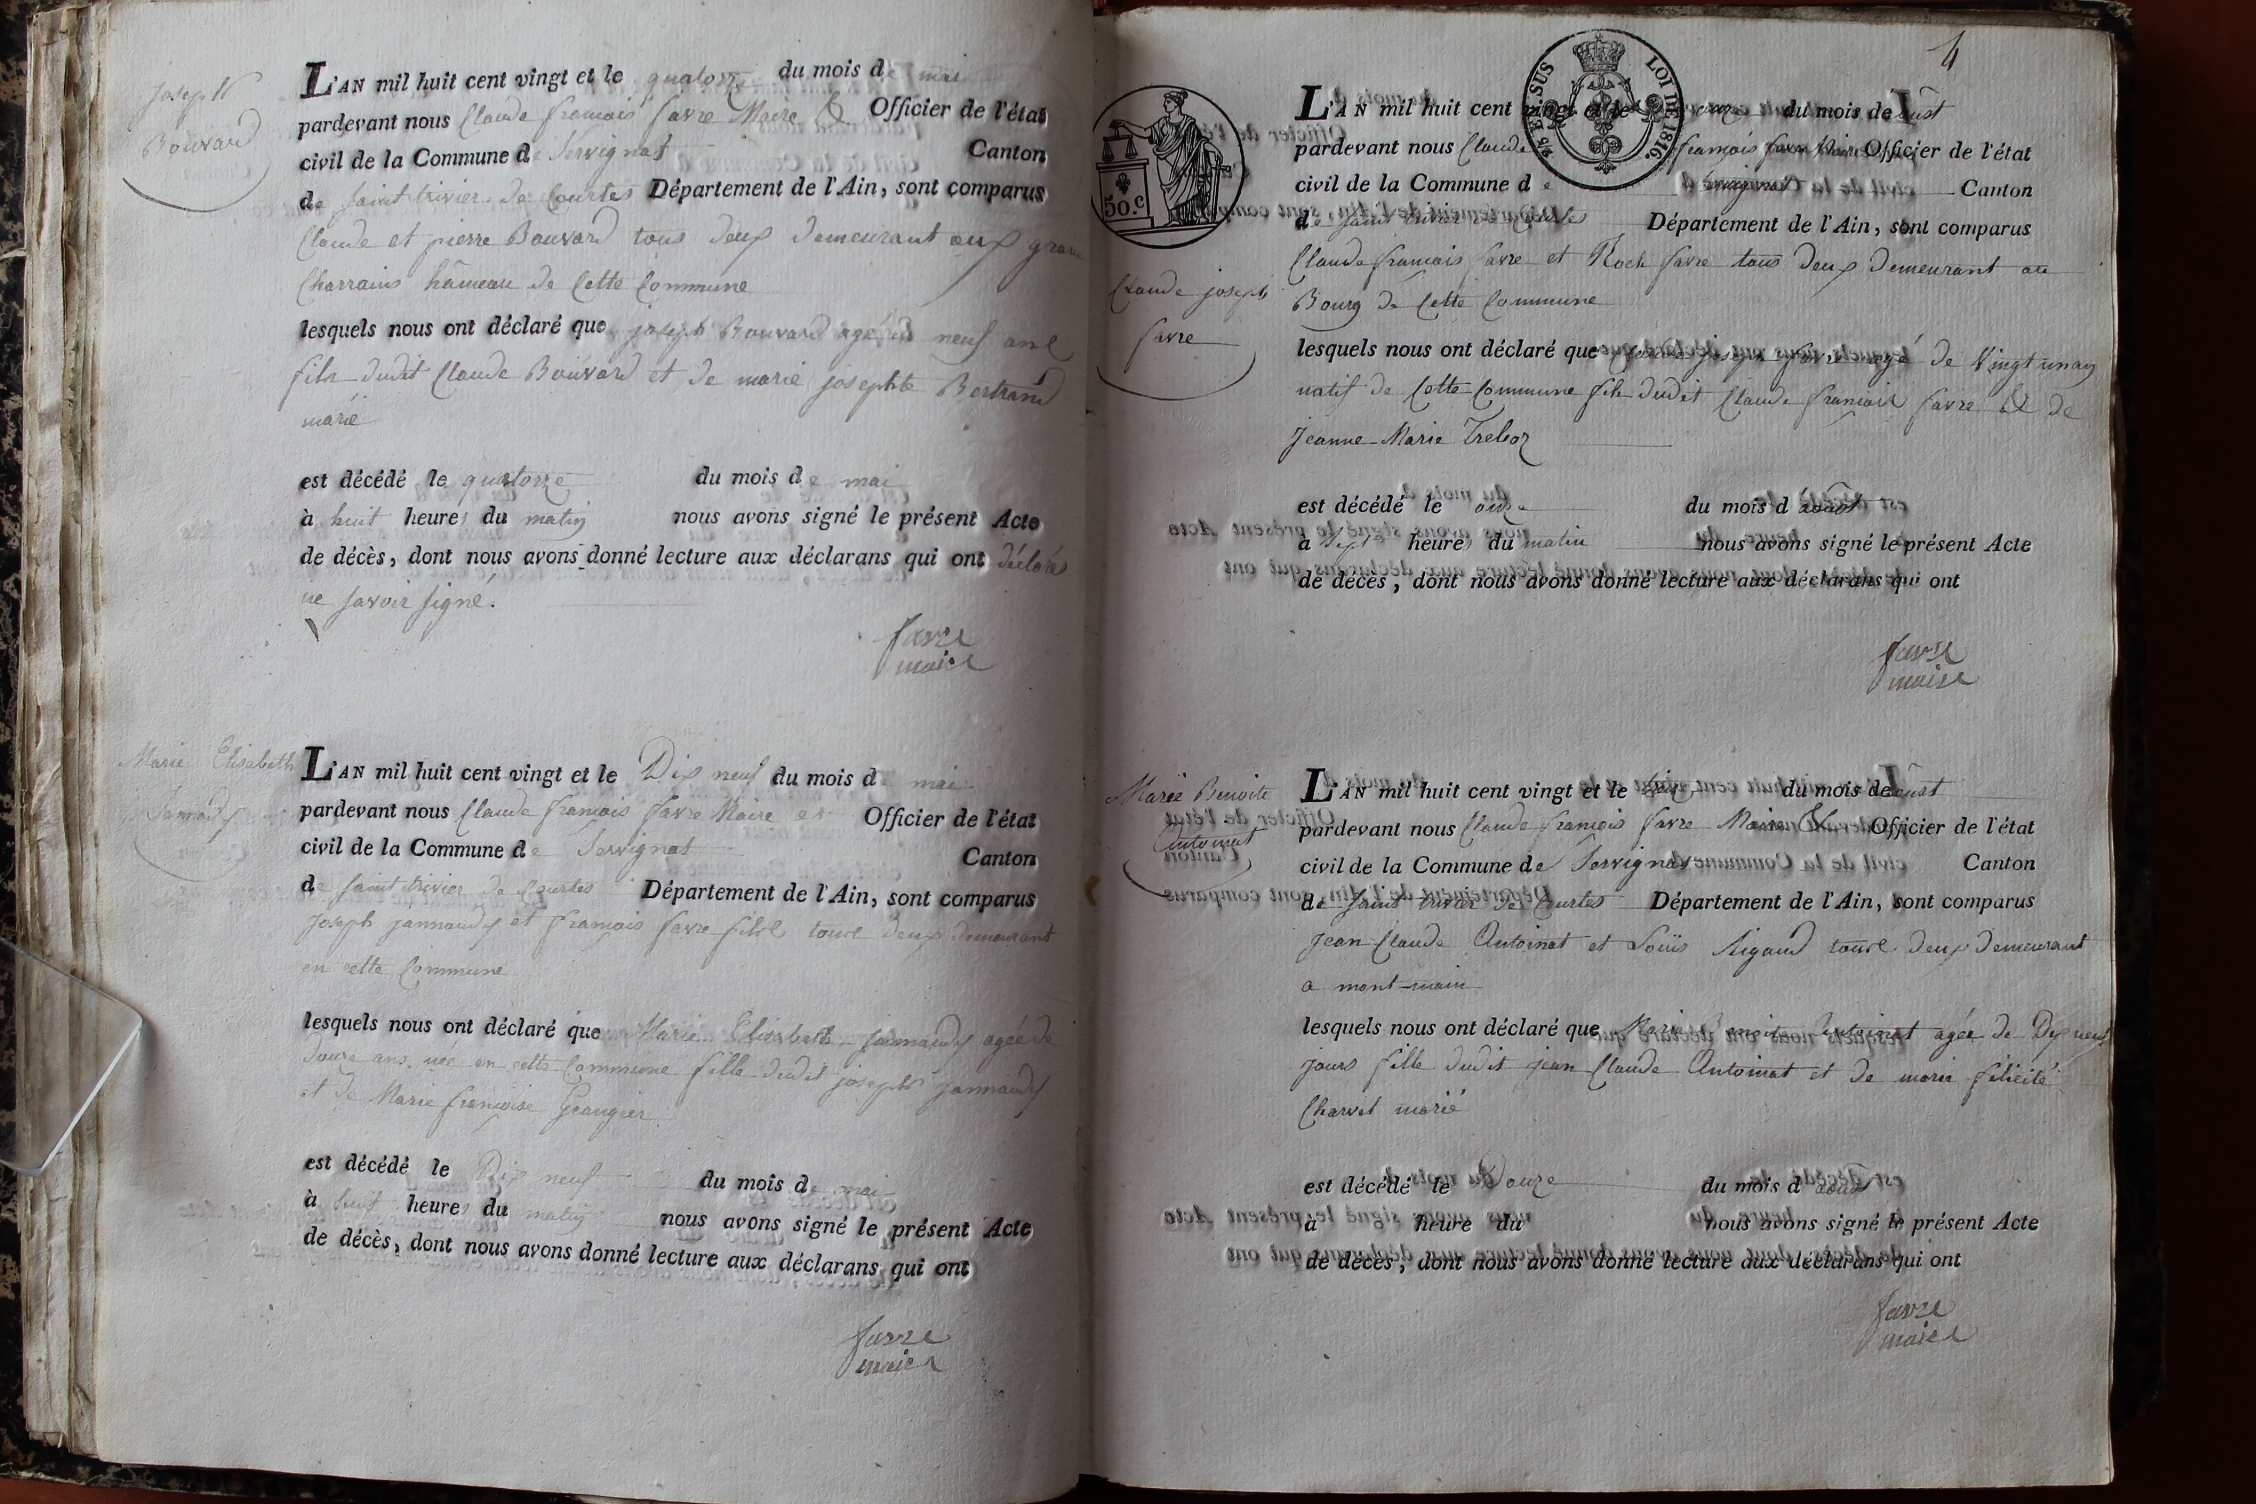 Joseph
Bouvard
L'AN mil huit cent vingt et le quatorze du mois de mai
pardevant nous Claude françois favre Maire & Officier de l'état
civil de la Commune de Servignat Canton
de saint trivier de Courtes Département de l'Ain, sont comparus
Claude et pierre Bouvard tous deux demeurant aux
Charrains hameau de Cette Commune
lesquels nous ont déclaré que joseph Bouvard agé de neuf ans
fils dudit Claude Bouvard et de marie josephte Bertrand
marié
est décédé le quatorze du mois de mai
à huit heures du matin nous avons signé le présent Acte
de décès, dont nous avons donné lecture aux déclarans qui ont déclarés
ne savoir signé.
favre
maire
Marie Elisabeth
Jannaudy
L'AN mil huit cent vingt et le Dix neuf du mois de mai
pardevant nous Claude françois favre Maire et Officier de l'état
civil de la Commune de Servignat Canton
de saint trivier de Courtes Département de l'Ain, sont comparus
Joseph jannaudy et françois favre fils tous deux demeurant
en cette Commune
lesquels nous ont déclaré que Marie Elisabeth jannaudy agée de
douze ans née en cette Commune fille dudit joseph jannaudy
et de Marie françoise
est décédé le Dix neuf du mois de mai
à huit heures du matin nous avons signé le présent Acte
de décès, dont nous avons donné lecture aux déclarans qui ont
favre
maire
4
25 EN SUS LOI DE 1816.
50.c
Claude joseph
favre
L'AN mil huit cent vingt et le onze du mois de août
pardevant nous Claude françois favre Maire Officier de l'état
civil de la Commune de Servignat Canton
de saint trivier de Courtes Département de l'Ain, sont comparus
Claude françois favre et Roch favre tous deux demeurant au
Bourg de Cette Commune
lesquels nous ont déclaré que Claude joseph favre agé de Vingt un ans
natif de Cette Commune fils dudit Claude françois favre & de
Jeanne Marie
est décédé le onze du mois d août
à sept heures du matin nous avons signé le présent Acte
de décès, dont nous avons donné lecture aux déclarans qui ont
favre
maire
Marie Benoite
Antoinat
L'AN mil huit cent vingt et le du mois de août
pardevant nous Claude françois favre Maire & Officier de l'état
civil de la Commune de Servignat Canton
de saint trivier de Courtes Département de l'Ain, sont comparus
Jean Claude Antoinat et Louis Rigaud tous deux demeurant
a mont-main
lesquels nous ont déclaré que Marie Benoite Antoinat agée de Dix neuf
jours fille dudit jean Claude Antoinat et de marie félicité
Charvet marié
est décédé le Douze du mois d août
à heure du nous avons signé le présent Acte
de décès, dont nous avons donné lecture aux déclarans qui ont
favre
maire